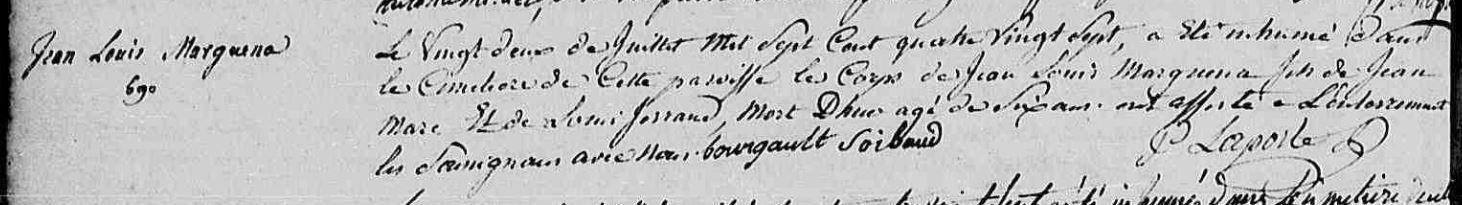 Jean Louis Marguena
690
Le Vingt deux de Juillet Mil Sept Cent quatre Vingt Sept, a Eté inhumé dans
le Cimetiere de Cette paroisse le Corps de Jean Louis Marguena fils de Jean
Marc Et de Louise ferrand, Mort D'hier agé de Six ans. ont assisté a L'enterrement
les Soussignans avec nous. bourgault Soibaud
P Laporte